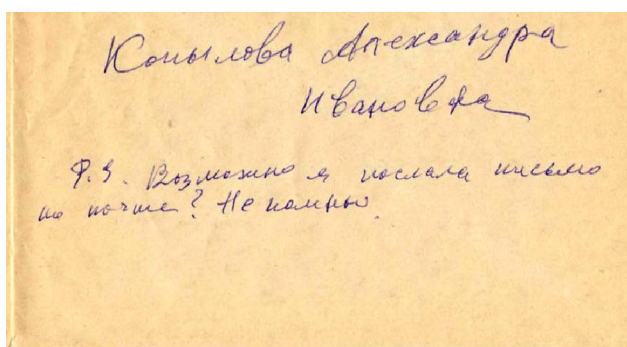 Копылова Александра
Ивановна
P.S. Возможно я послала письмо
по почте? Не помню.